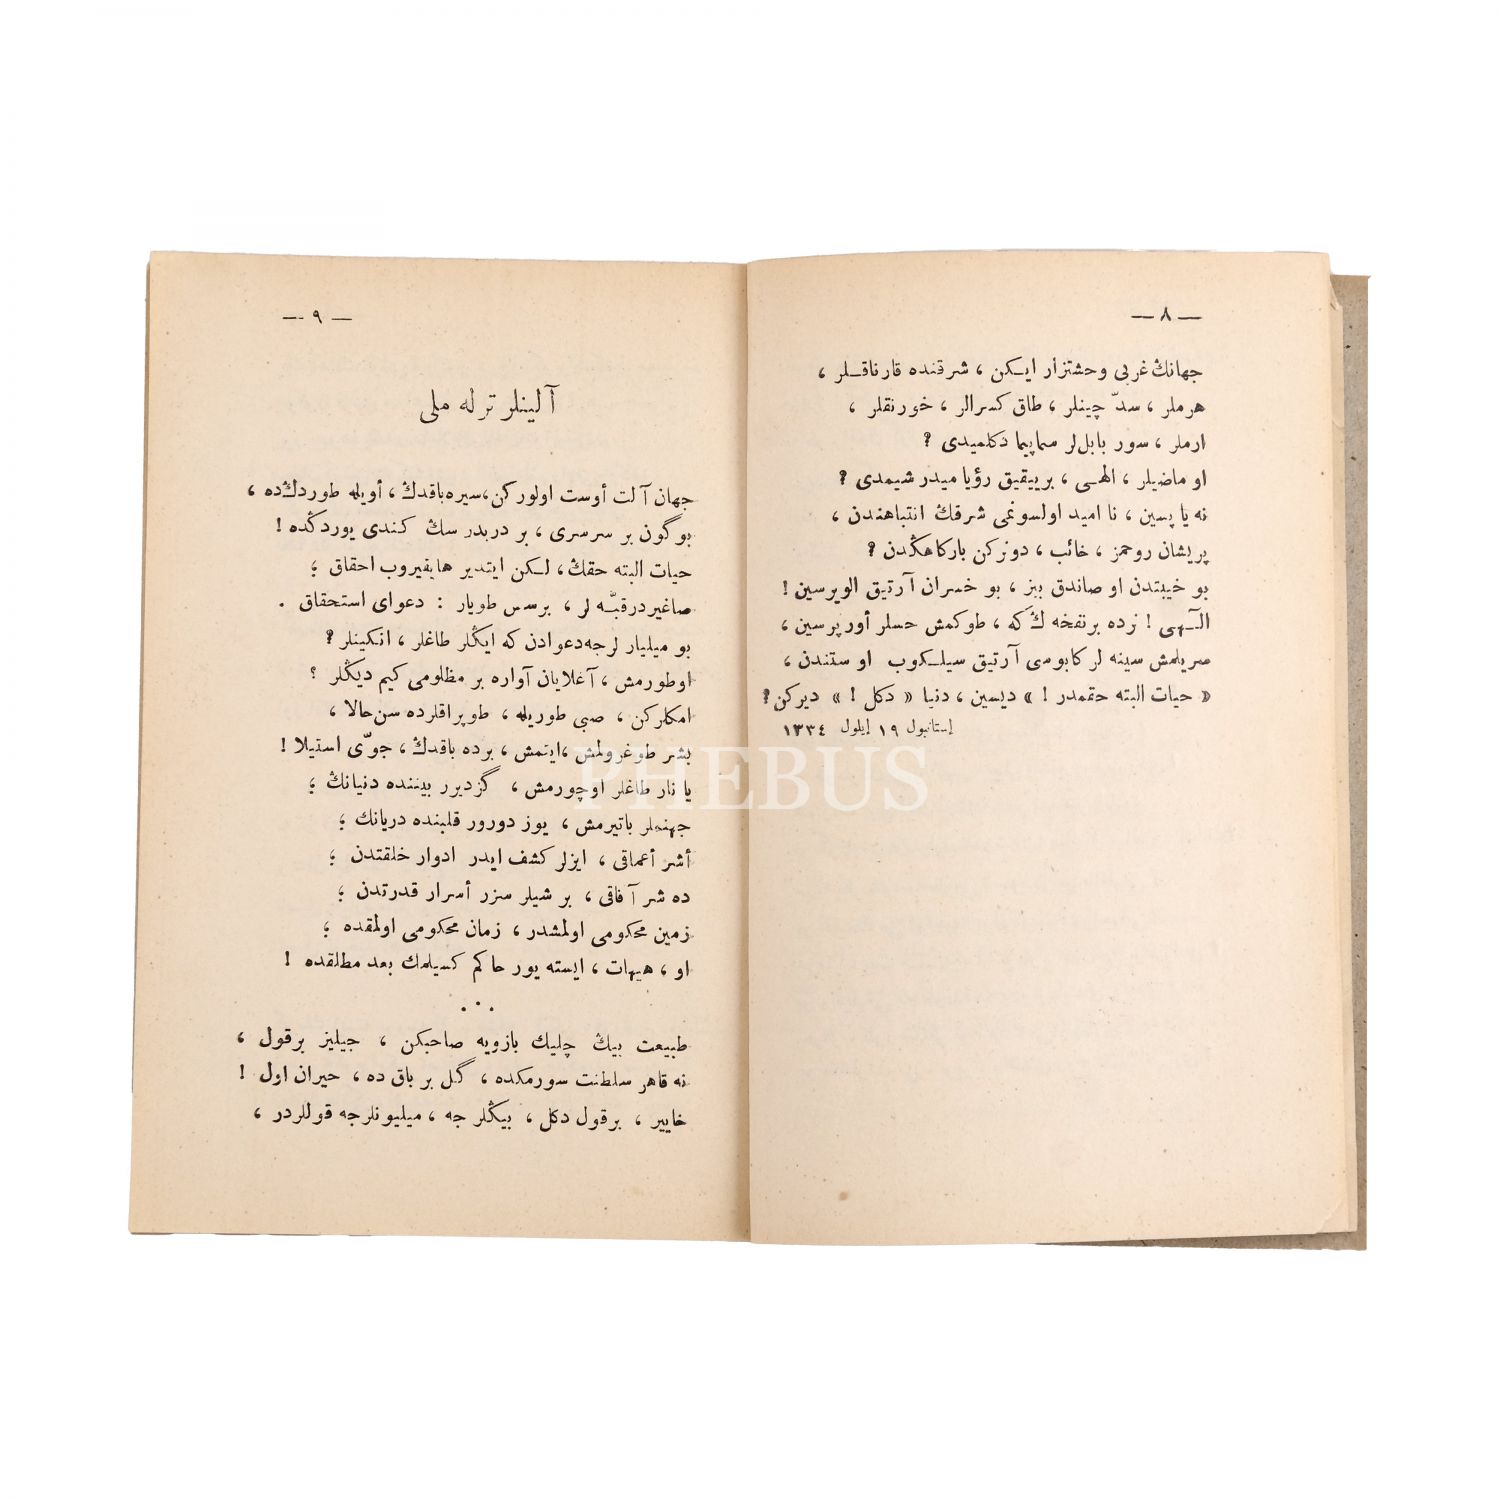 — ٨ —
جهانڭ غربى وحشتزار ايكن ، شرقنده قارناقلر ،
هرملر ، سدّ چينلر ، طاق كسرالر ، خورنقلر ،
ارملر ، سور بابل‌لر سماپيما دكلميدى ؟
او ماضيلر ، الهى ، بر ييقيق رؤيا ميدر شيمدى ؟
نه يا پسين ، نا اميد اولسونمى شرقڭ انتباهندن ،
پريشان روحمز ، خائب ، دونركن بارگاهڭدن ؟
بو خيبتدن او صاندق بيز ، بو خسران آرتيق الويرسين !
الٓهى ! نرده بر نفخه ڭ كه ، طوڭمش حسلر أورپرسين ،
سريلمش سينه لر كابوسى آرتيق سيلكوب اوستندن ،
« حيات البته حقمدر ! » ديسين ، دنيا « دكل ! » ديركن ؟
إستانبول ١٩ إيلول ١٣٣٤
— ٩ —
آلينلر ترله ملى
جهان آلت أوست اولوركن، سيره باقدڭ ، أويله طوردڭده ،
بوگون بر سرسرى ، بر دربدر سڭ كندى يوردڭده !
حيات البته حقڭ ، لكن ايتدير هايقيروب احقاق ؛
صاغيردر قبّه لر ، بر سس طويار : دعواى استحقاق .
بو ميليار لرجه دعوادن كه ايڭلر طاغلر ، انكينلر ؟
اوطورمش ، آغلايان آواره بر مظلومى كيم ديڭلر ؟
امكلركن ، صبى طوريله ، طوپراقلرده سن حالا ،
بشر طوغرولمش ،ايتمش ، برده باقدڭ ، جوّى استيلا !
يا نار طاغلر اوچورمش ، گزديرر بيننده دنيانڭ ؛
جهنملر باتيرمش ، يوز دورور قلبنده دريانڭ ؛
أشر أعماقى ، ايزلر كشف ايدر ادوار خلقتدن ؛
ده شر آفاقى ، بر شيلر سزر أسرار قدرتدن ؛
زمين محكومى اولمشدر ، زمان محكومى اولمقده ؛
او ، هيهات ، ايسته يور حاكم كسيلمك بعد مطلقده !
. · .
طبيعت بيڭ چليك بازويه صاحبكن ، جيليز بر قول ،
نه قاهر سلطنت سورمكده ، گل بر باق ده ، حيران اول !
خايير ، بر قول دكل ، بيڭلر جه ، ميليونلرجه قوللردر ،
PHEBUS